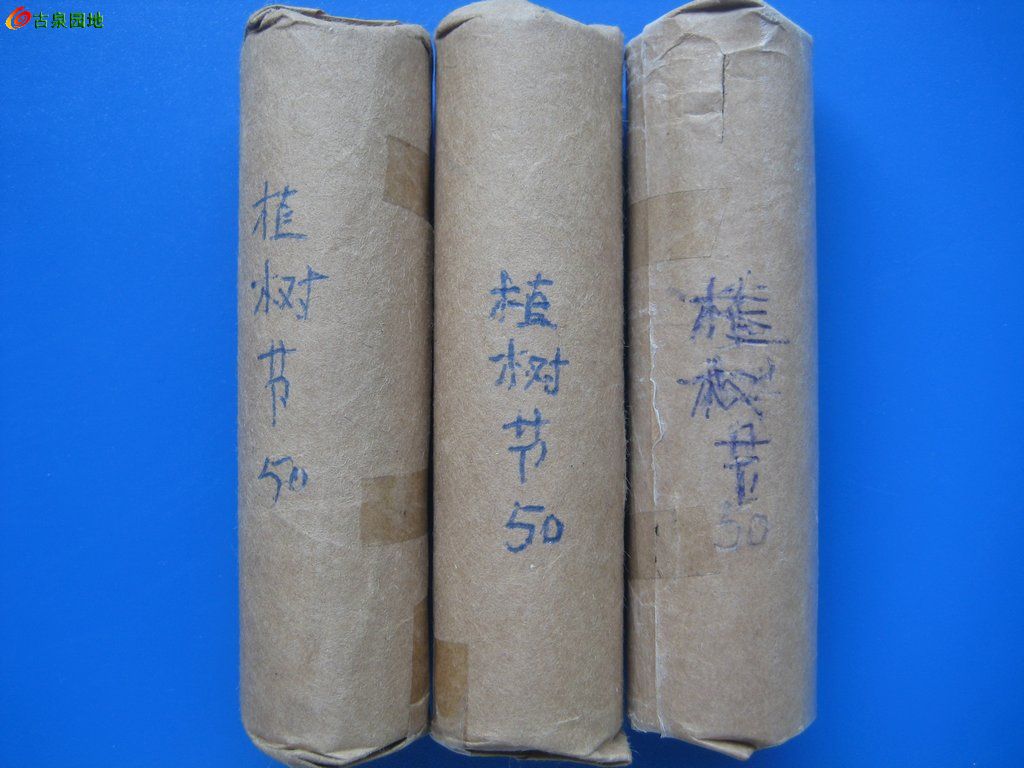 古泉园地
植
树
节
50
植
树
节
50
植
树
节
50